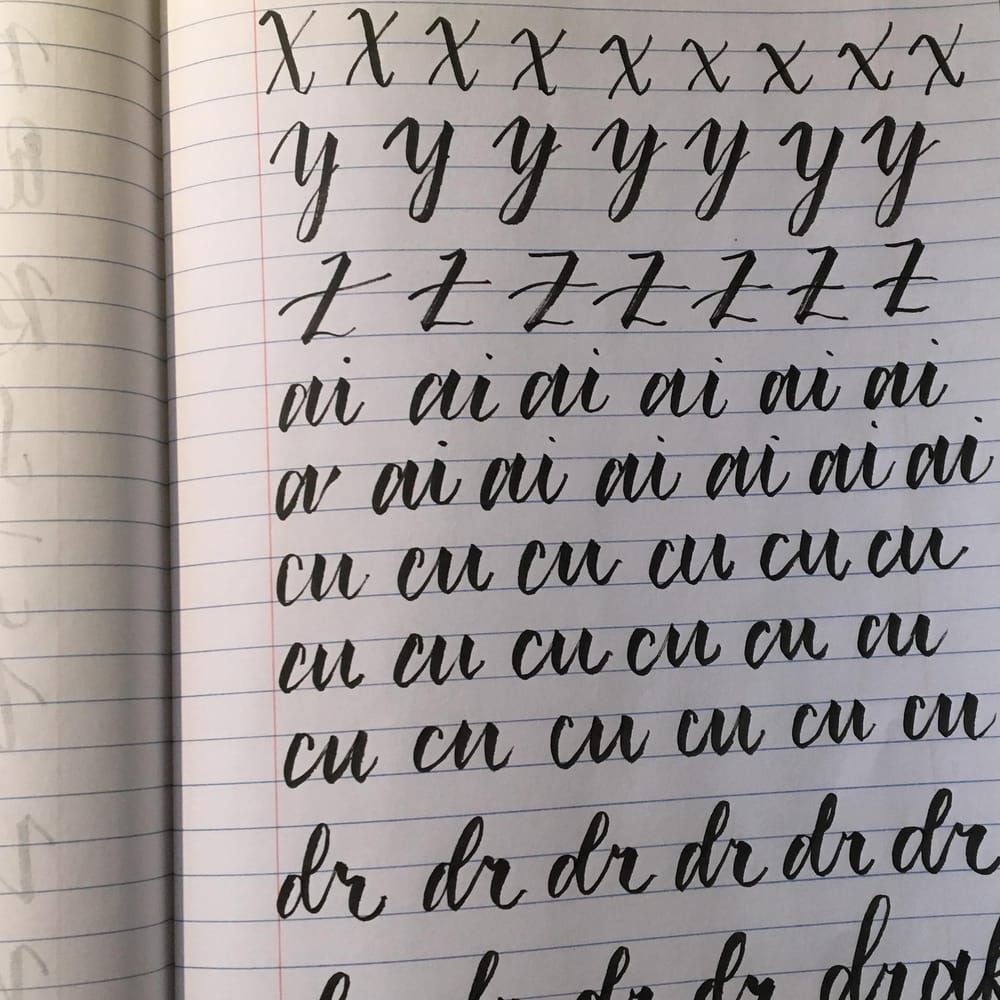 x x x x x x x x x
y y y y y y y
z z z z z z z
ai ai ai ai ai ai
av ai ai ai ai ai ai
cu cu cu cu cu cu
cu cu cu cu cu cu
cu cu cu cu cu cu
dr dr dr dr dr dr